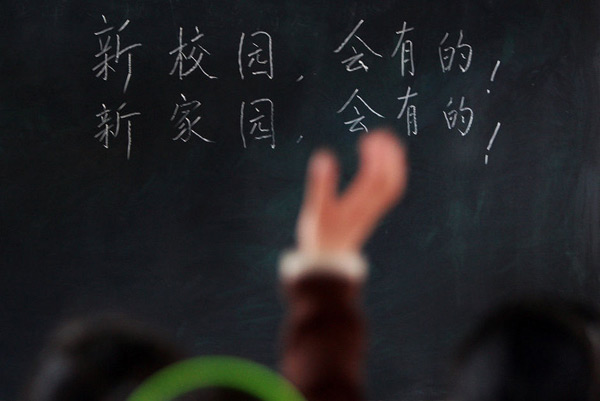 新校园,会有的!
新家园,会有的!